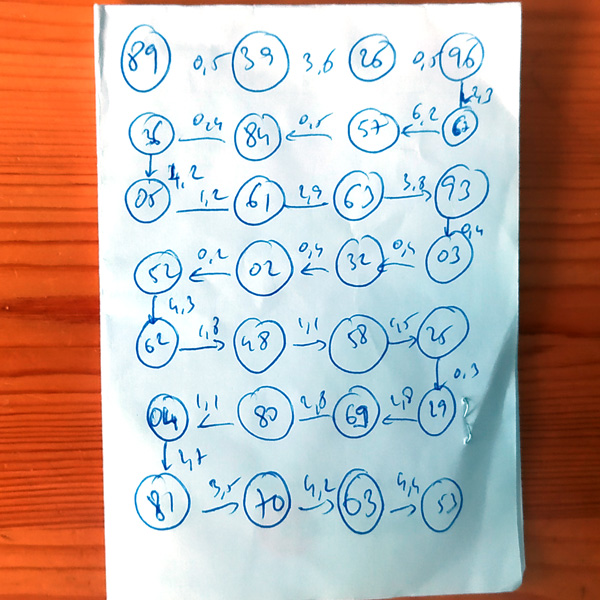 89 0,5 39 3,6 26 0,5 96
2,3
36 0,4 84 0,5 57 6,2 67
1,2
05 1,2 61 2,9 63 3,8 93
0,4
52 0,2 02 0,4 32 0,4 03
4,3
62 1,8 48 1,1 58 4,5 25
0,3
04 1,1 80 2,8 69 2,8 29
2,7
81 3,5 70 4,2 63 4,4 53